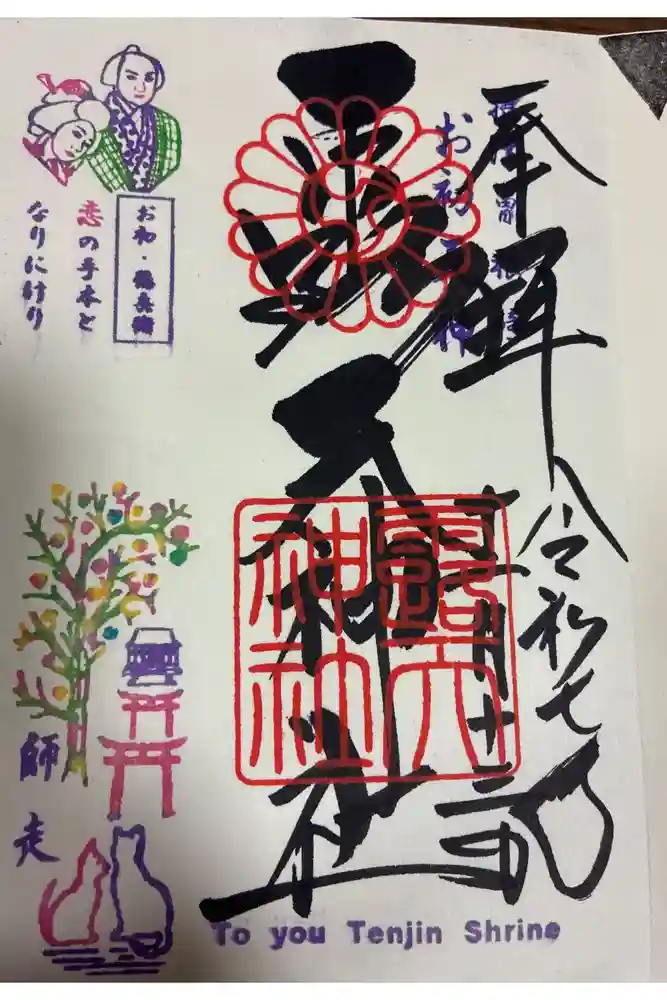 奉拝
令和七年
十二月十二日
お初天神
露天神社
露天
神社
お初・徳兵衛
恋の手本と
なりにけり
師走
To you Tenjin Shrine